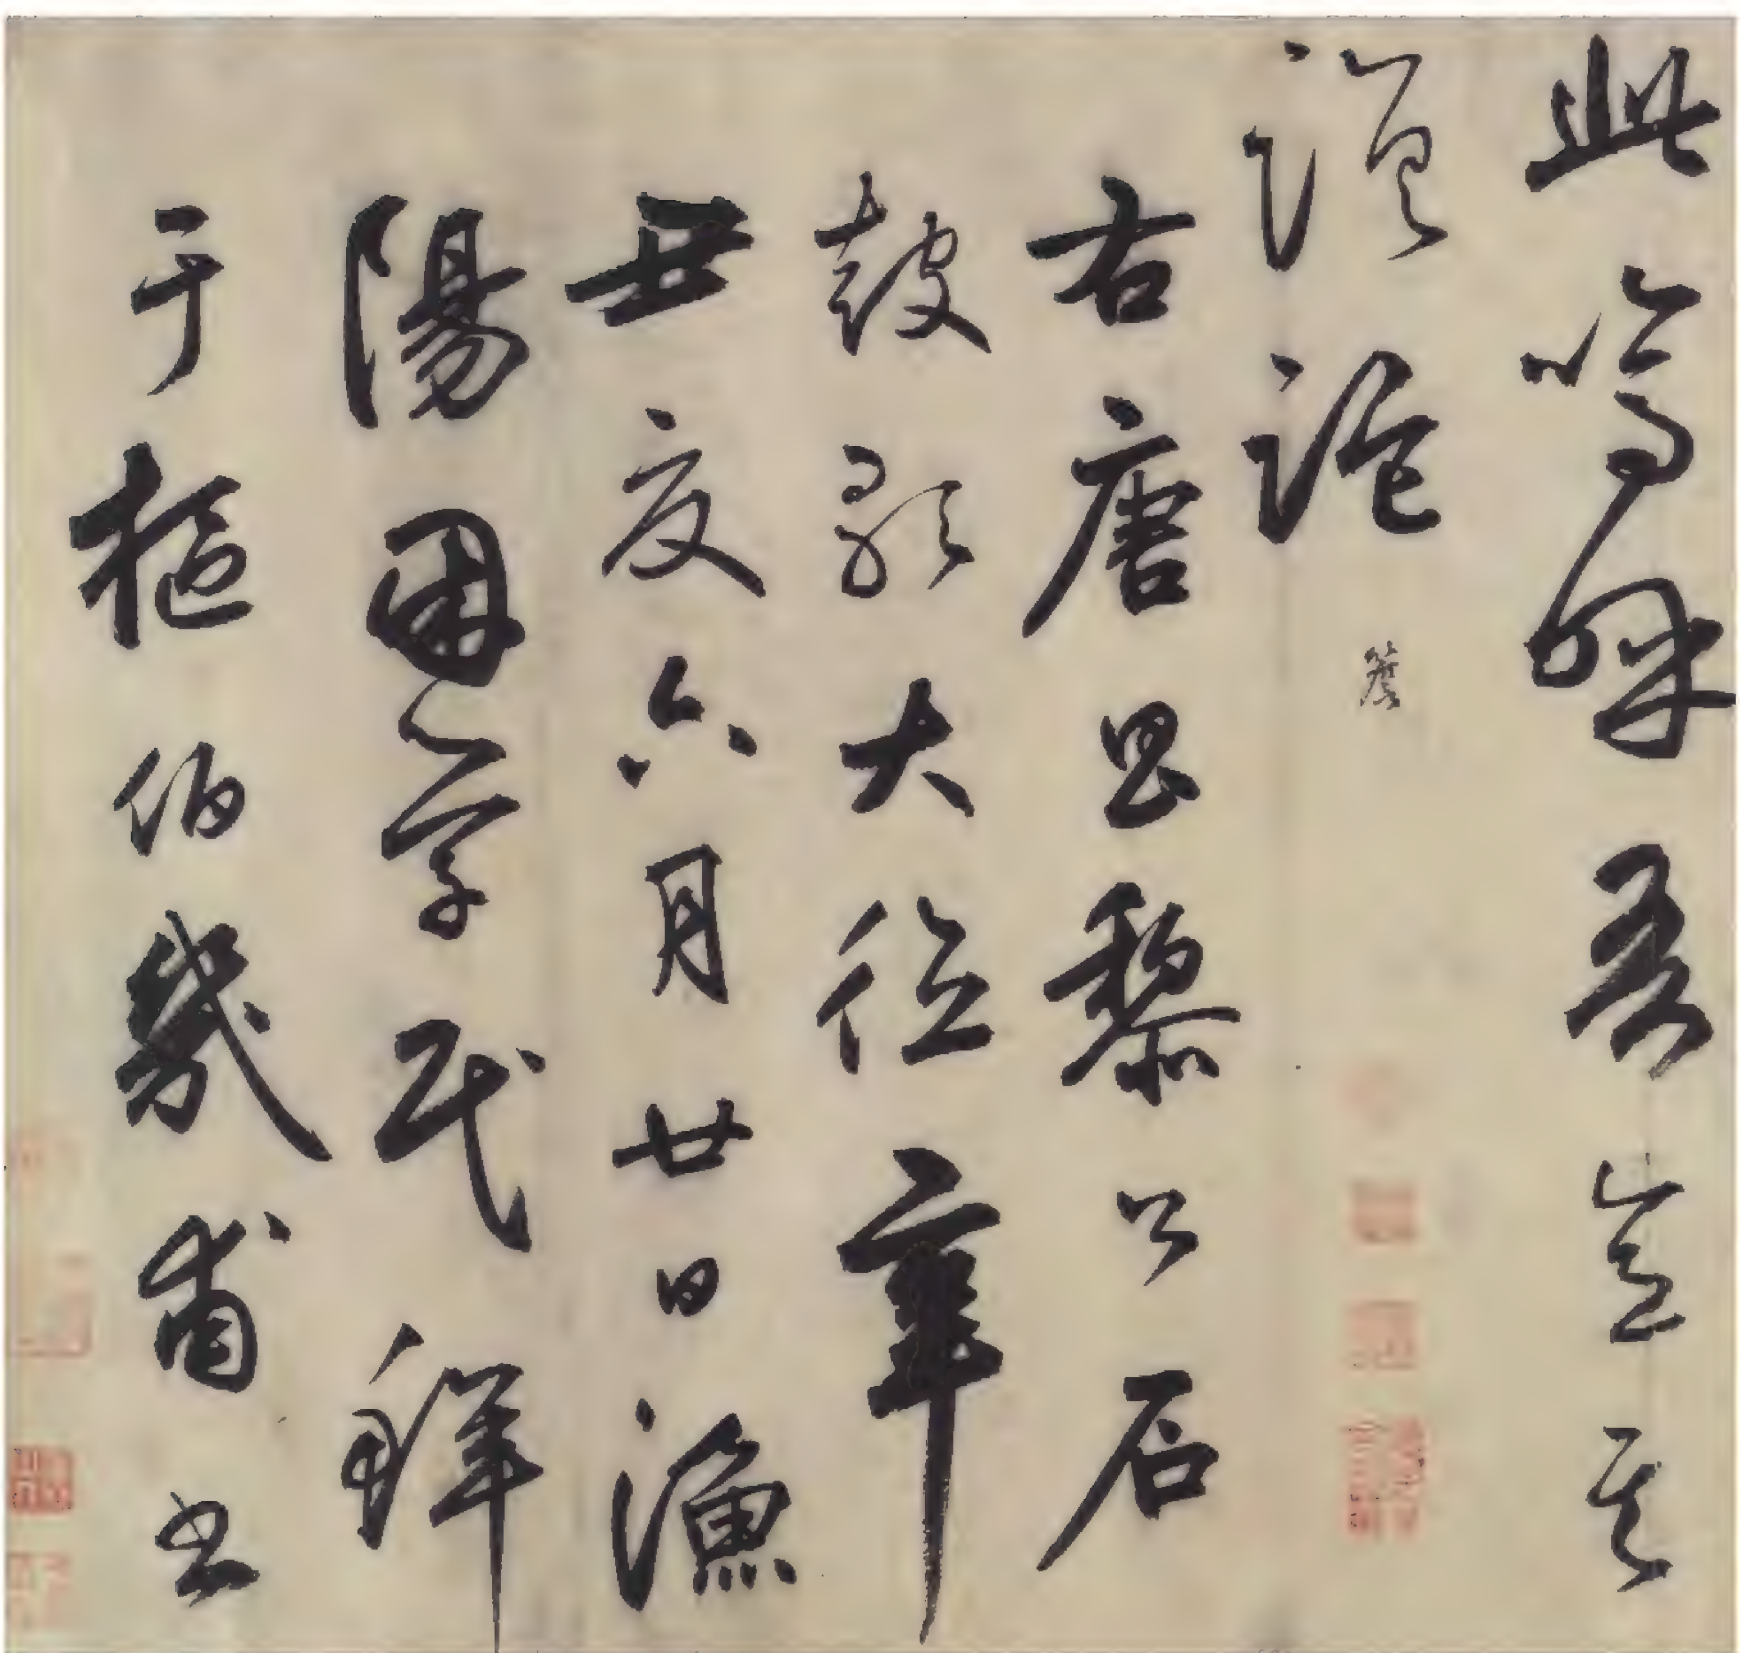 此嗚呼吾意其
蹉跎
右唐昌黎公石
鼓歌大德辛
丑夏六月廿日漁
陽困學民鮮
于樞伯幾甫書